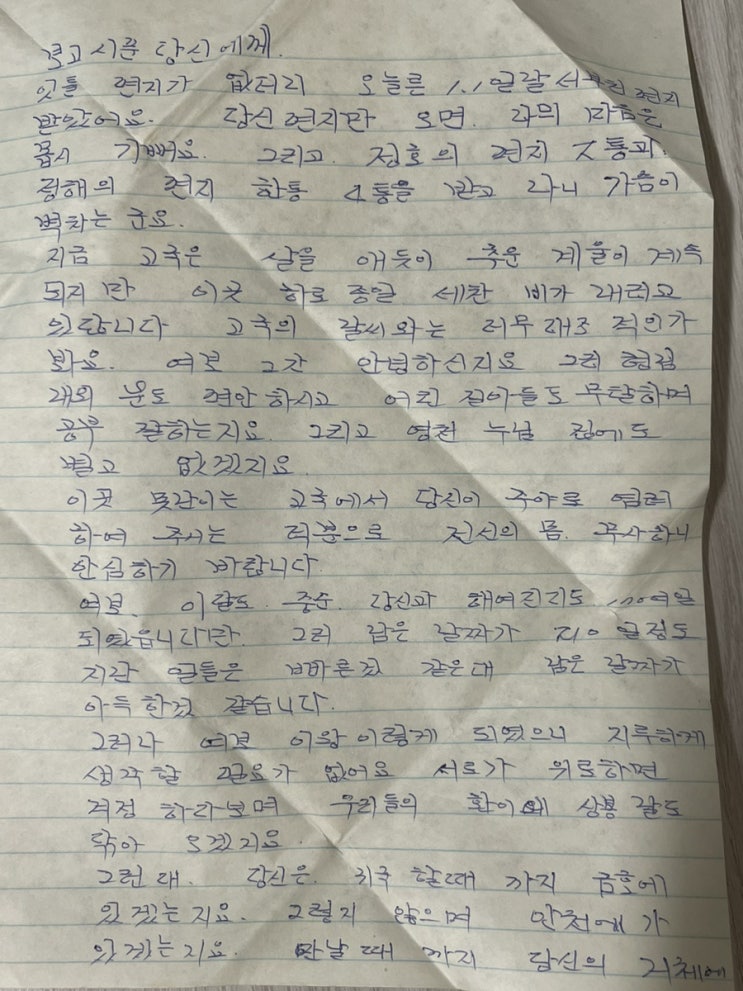 보고 시픈 당신에게.
잇틀 편지가 없더리 오늘은 1.1일날 서 편지
받았어요. 당신 편지만 오면. 나의 마음은
몹시 기뻐요. 그리고. 정호의 편지 조통과.
정해의 편지 한통 4통을 받고 나니 가슴이
벅차는 군요.
지금 고국은 살을 애듯이 추운 계울이 계속
되지만 이곳 하로 종일 세찬 비가 내리고
있답니다 고국의 날씨와는 너무 대조 적인가
봐요. 여보 그간 안녕하신지요 그리 형님
내외 분도 편안하시고 어린 질아들도 무탈하며
공부 잘하는지요. 그리고 영천 누님 집에도
별고 없겠지요.
이곳 못난이는 고국에서 당신이 주야로 염려
하여 주시는 덕뿐으로 전신의 몸. 무사하니
안심하기 바랍니다.
여보. 이람도 중순. 당신과 해여진지도 110여일
되었읍니다만. 그러 남은 날짜가 210 일정도
지난 일들은 빠른것 같은대 남은 날짜가
아득한것 같습니다.
그러나 여보 이왕 이렇게 되였으니 지루하게
생각할 필요가 없어요 서로가 위로하면
걱정 하다보며 우리들의 환이에 상봉 날도
닥아 오겠지요.
그런대. 당신은. 귀국 할때 까지 금호에
있겠는지요. 그렇지 않으며 안전에가
있겠는지요. 만날때 까지 당신의 거체에